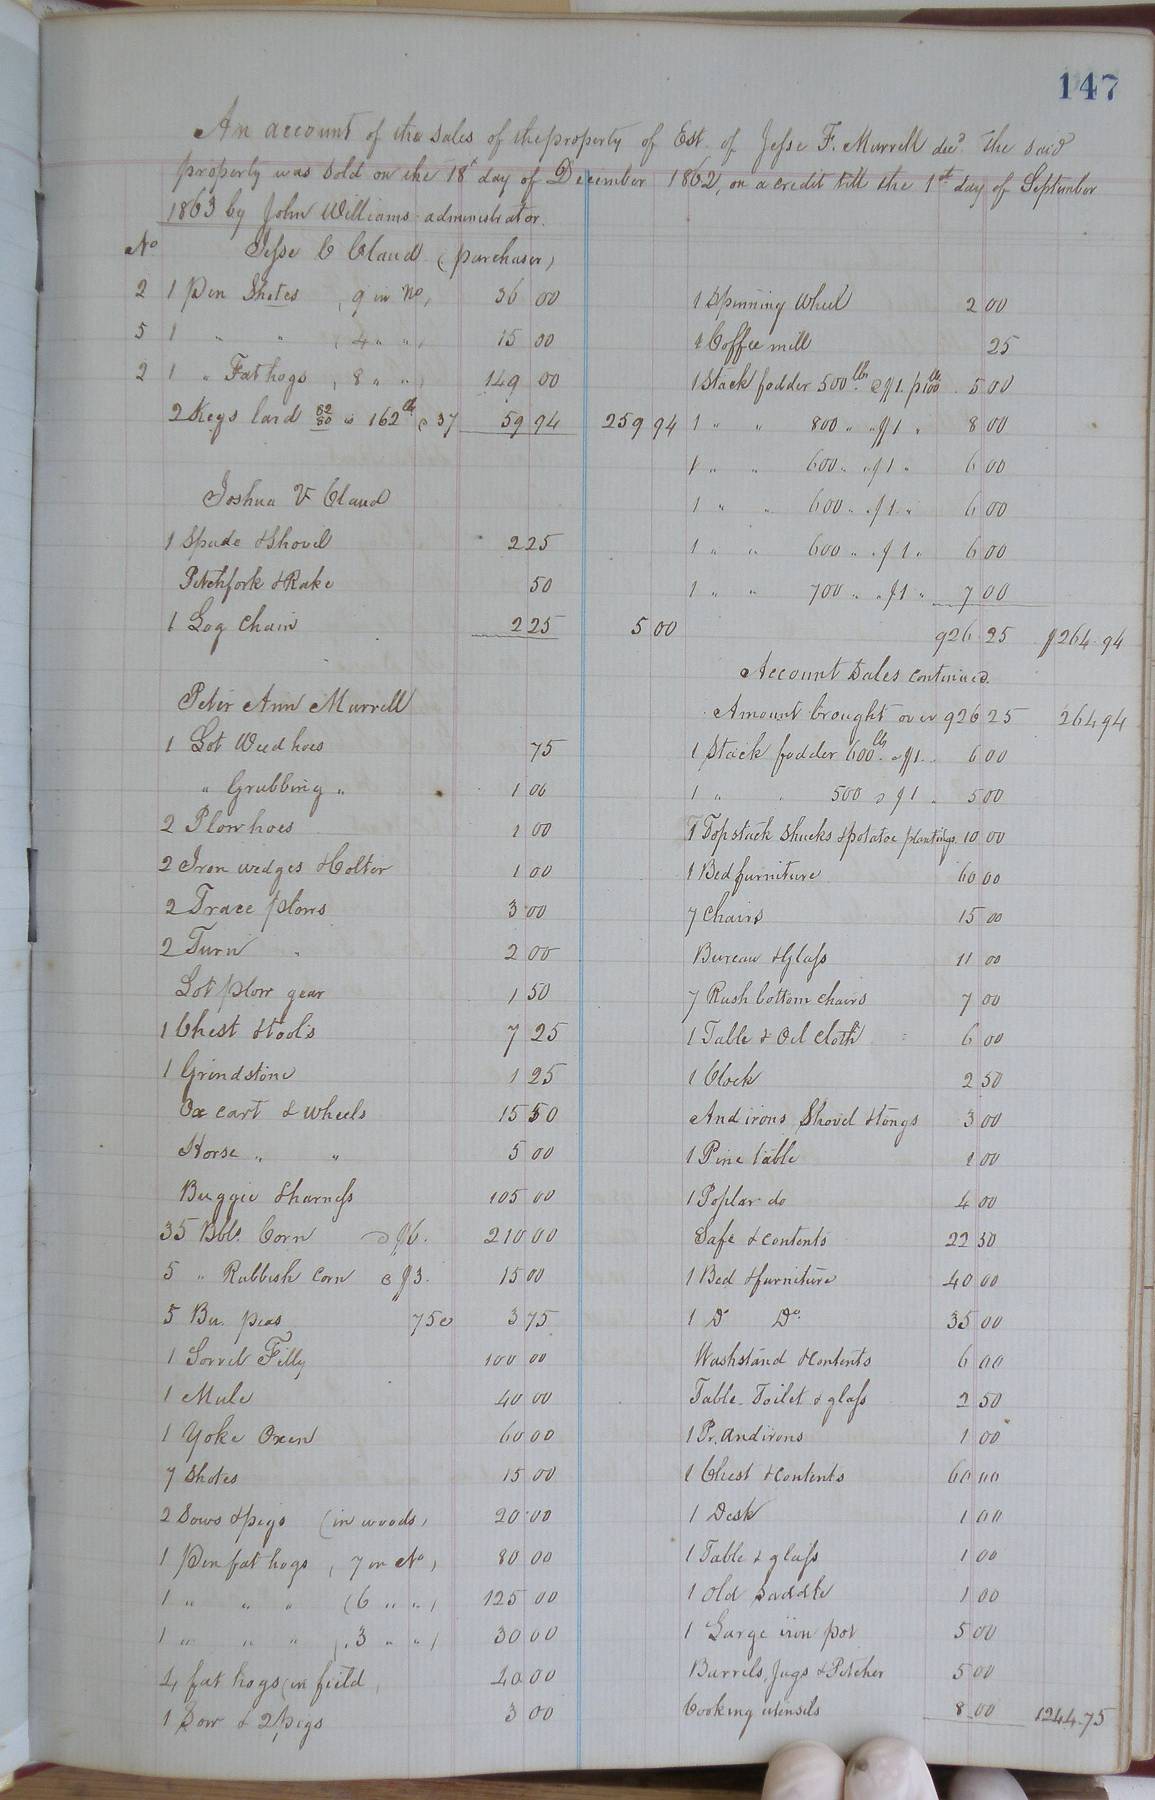 147
An account of the sales of the property of Est. of Jesse F. Murrell decd. The said
property was sold on the 18th day of December 1862, on a credit till the 1st day of September
1863 by John Williams administrator.
No Jesse C Claud (purchaser)
2 1 Pen Shotes (9 in No) 36 00
5 1 " " (4 " ") 15 00
2 1 " Fat hogs (8 " ") 149 00
2 Kegs lard 82/80 is 162 lb @ 37 59 94 259 94
Joshua V Claud
1 Spade & Shovel 2 25
Pitchfork & Rake 50
1 Log Chain 2 25 5 00
Peter Ann Murrell
1 Lot Weed hoes 75
" Grubbing " 1 00
2 Plow hoes 1 00
2 Iron wedges & Colter 1 00
2 Trace plows 3 00
2 Turn " 2 00
Lot plow gear 1 50
1 Chest & tools 7 25
1 Grindstone 1 25
Ox cart & wheels 15 50
Horse " " 5 00
Buggie & harness 105 00
35 Bbls. Corn @ $6. 210 00
5 " Rubbish corn @ $3. 15 00
5 Bu. peas 75c 3 75
1 Sorrel Filly 100 00
1 Mule 40 00
1 Yoke Oxen 60 00
7 Shotes 15 00
2 Sows & pigs (in woods) 20 00
1 Pen fat hogs (7 in No) 80 00
1 " " " (6 " ") 125 00
1 " " " (3 " ") 30 00
4 fat hogs (in field) 40 00
1 Sow & 2 pigs 3 00
1 Spinning Wheel 2 00
1 Coffee mill 25
1 Stack fodder 500 lbs @ $1. p 100 lb 5 00
1 " " 800 " " $1 " 8 00
1 " " 600 " " $1 " 6 00
1 " " 600 " " $1 " 6 00
1 " " 600 " " $1 " 6 00
1 " " 700 " " $1 " 7 00
926 25 $264.94
Account Sales continued.
Amount brought over 926 25 264 94
1 Stack fodder 600 lb @ $1. 6 00
1 " " 500 @ $1 " 5 00
1 Top stack Shucks & potatoe plantings 10 00
1 Bed furniture 60 00
7 Chairs 15 00
Bureau & Glass 11 00
7 Rush bottom chairs 7 00
1 Table & Oil Cloth 6 00
1 Clock 2 50
And irons Shovel & tongs 3 00
1 Pine table 1 00
1 Poplar do 4 00
Safe & contents 22 50
1 Bed & furniture 40 00
1 Do Do. 35 00
Washstand & Contents 6 00
Table Toilet & glass 2 50
1 Pr. Andirons 1 00
1 Chest & Contents 60 00
1 Desk 1 00
1 Table & glass 1 00
1 Old Saddle 1 00
1 Large iron pot 5 00
Barrels, Jugs & Pitcher 5 00
Cooking utensils 8 00 1244.75